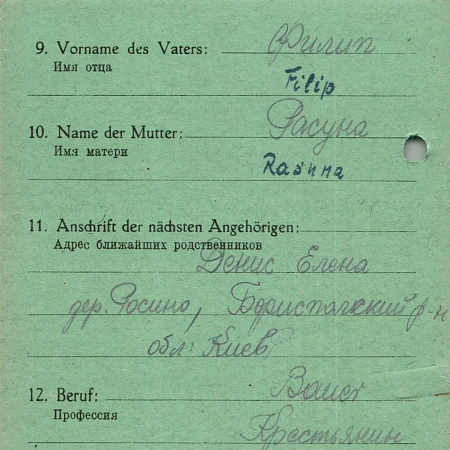 9. Vorname des Vaters: Филип
Имя отца
Filip
10. Name der Mutter: Расуна
Имя матери
Rasuna
11. Anschrift der nächsten Angehörigen:
Адрес ближайших родственников
Денис Елена
дер. Росино, Бориспольский р-н
обл: Киев
12. Beruf: Bauer
Профессия
Крестьянин